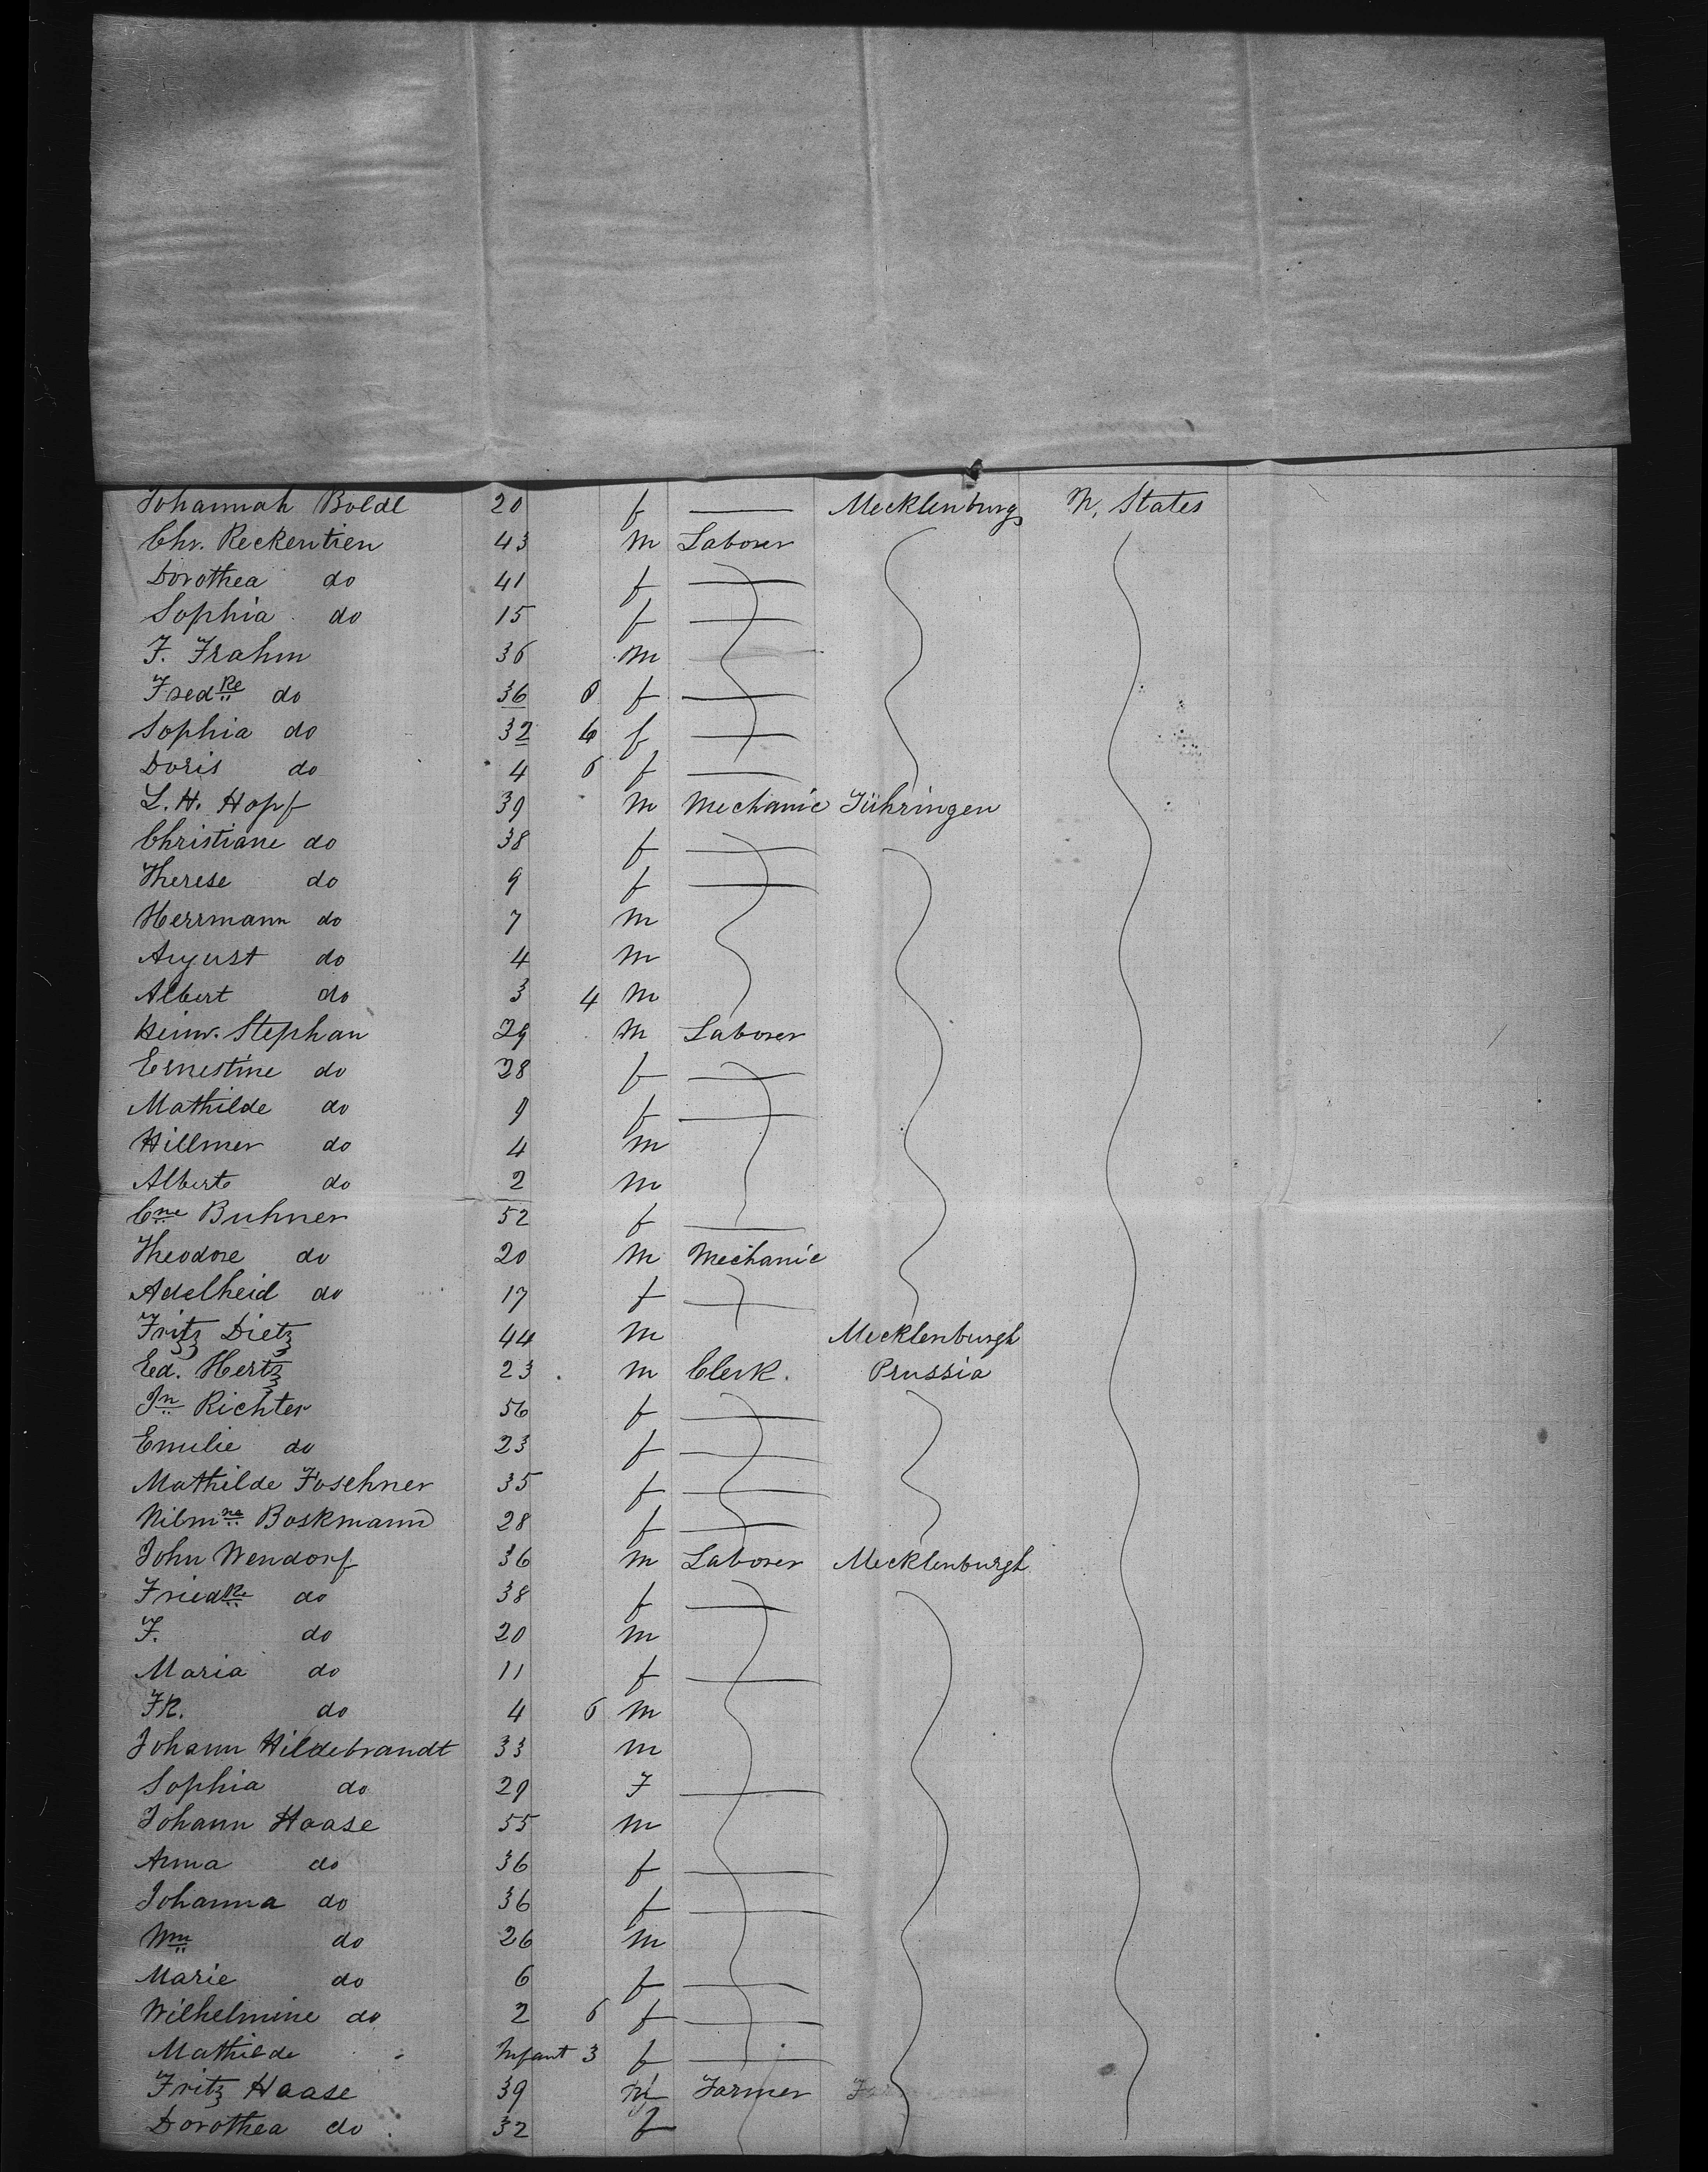 Johannah Boldt 20 f Mecklenburg N. States
Chr. Reckentien 43 m Laborer
Dorothea do 41 f
Sophia do 15 f
F. Frahm 36 m
Fredke do 36 f
Sophia do 32 6 f
Doris do 4 6 f
L. H. Hopf 39 m Mechanic Tühringen
Christiane do 38 f
Therese do 9 f
Herrmann do 7 m
August do 4 m
Albert do 3 4 m
Heinr. Stephan 29 m Laborer
Ernestine do 28 f
Mathilde do 9 f
Hillmer do 4 m
Albert do 2 m
Cne Buhner 52 f
Theodore do 20 m Mechanic
Adelheid do 17 f
Fritz Dietz 44 m Mecklenburgh
Ed. Hertz 23 m Clerk. Prussia
Jn Richter 56 f
Emilie do 23 f
Mathilde Foschner 35 f
Wilmne Boskmann 28 f
John Wendorf 36 m Laborer Mecklenburgh
Friedke do 38 f
F. do 20 m
Maria do 11 f
FR. do 4 6 m
Johann Hildebrandt 33 m
Sophia do 29 F
Johann Haase 55 m
Anna do 36 f
Johanna do 36 f
Wm do 26 m
Marie do 6 f
Wilhelmine do 2 6 f
Mathilde Infant 3 f
Fritz Haase 39 m Farmer
Dorothea do 32 f